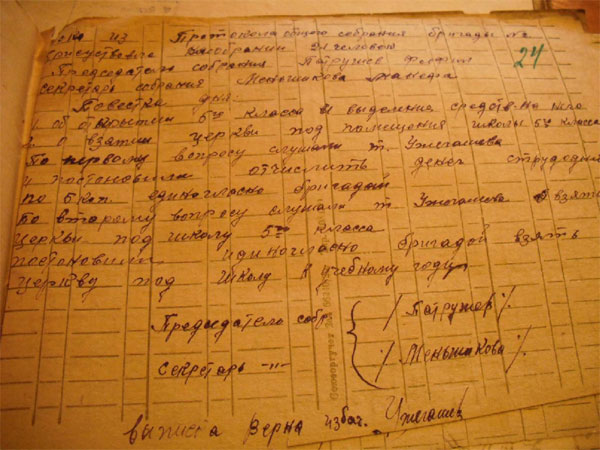 из Протокола общего собрания бригады №2
присутствовало на собрании 21 человек
24
Председатель собрания Патрушев
секретарь собрания Меньшикова
Повестка дня
1 об открытии 5го класса и выделения средств на
2 о взятии церкви под помещения школы 5го класса
По первому вопросу слушали т. Ужегова
и постановили отчислить денег с трудодня
по 5 коп. единогласно бригадой
По второму вопросу слушали т. взять
церкви под школу 5го класса
постановили идиногласно бригадой взять
церкву под школу к учебному году
Председатель собр. / Патрушев /.
секретарь -"- / Меньшикова /.
выписка верна избач.